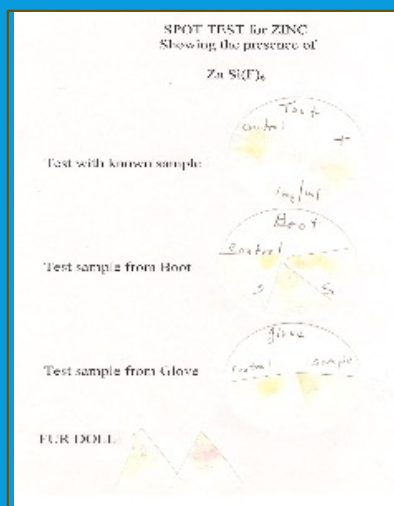 SPOT TEST for ZINC
Showing the presence of
Zn Si(F)₆
Test
control
+
Test with known sample
1mg/ml
Boot
Control
Test sample from Boot
S S
glove
Control sample
Test sample from Glove
FUR DOLL